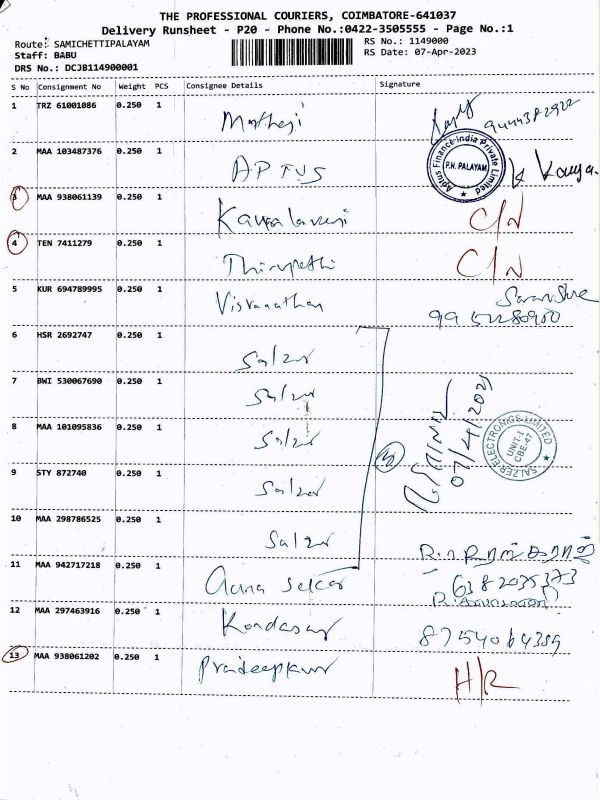 THE PROFESSIONAL COURIERS, COIMBATORE-641037
Delivery Runsheet - P20 - Phone No.:0422-3505555 - Page No.:1
Route: SAMICHETTIPALAYAM
RS No.: 1149000
Staff: BABU
RS Date: 07-Apr-2023
DRS No.: DCJB114900001
S No Consignment No Weight PCS Consignee Details Signature
1 TRZ 61001086 0.250 1 9444382922
2 MAA 103487376 0.250 1 APTUS
Aptus Finance India Private Limited
P.N. PALAYAM
3 MAA 938061139 0.250 1 C/N
4 TEN 7411279 0.250 1 Thirupathi C/N
5 KUR 694789995 0.250 1 Visvanathan
6 HSR 2692747 0.250 1 Salzer
7 BWI 530067690 0.250 1 Salzer
8 MAA 101095836 0.250 1 Salzer
SALZER ELECTRONICS LIMITED
UNIT-1
CBE-47
9 STY 872740 0.250 1 Salzer
10 MAA 298786525 0.250 1 Salzer
11 MAA 942717218 0.250 1
6382035373
12 MAA 297463916 0.250 1
13 MAA 938061202 0.250 1 Pradeepkumar H/R